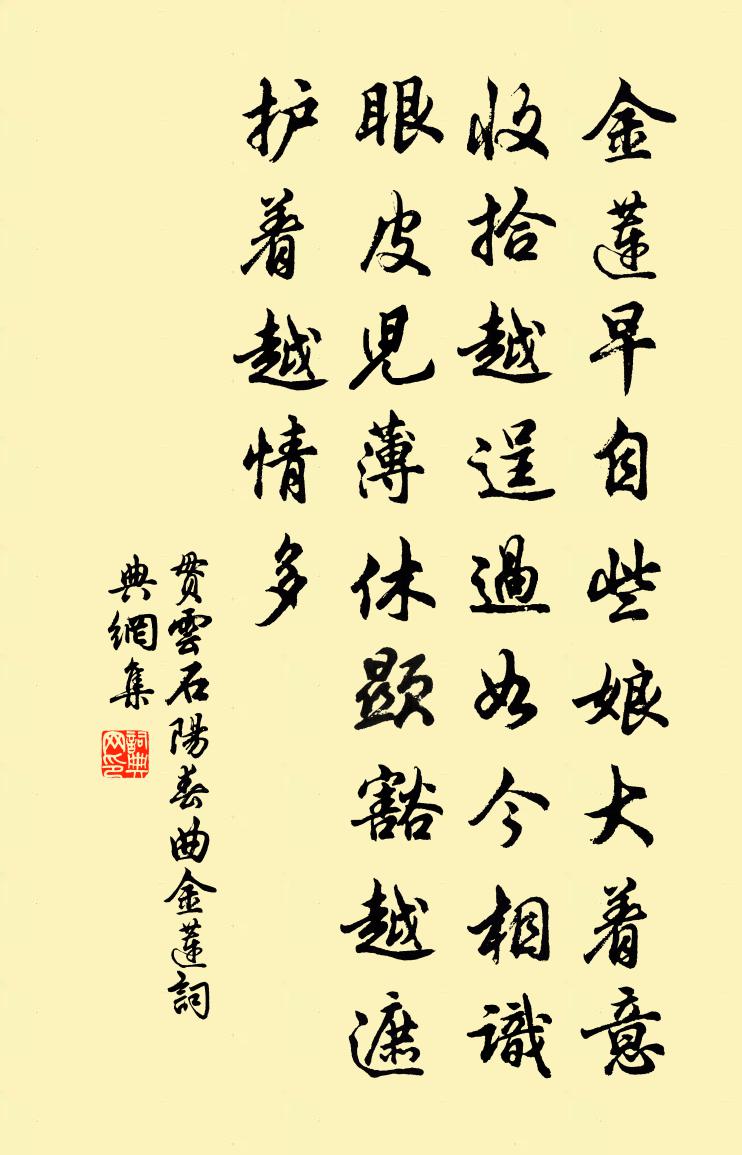 金蓮早自些娘大着意
收拾越逞過如今相識
眼皮児薄休顕豁越遮
护着越情多
贯雲石陽春曲金蓮詞
典網集
詞典网印